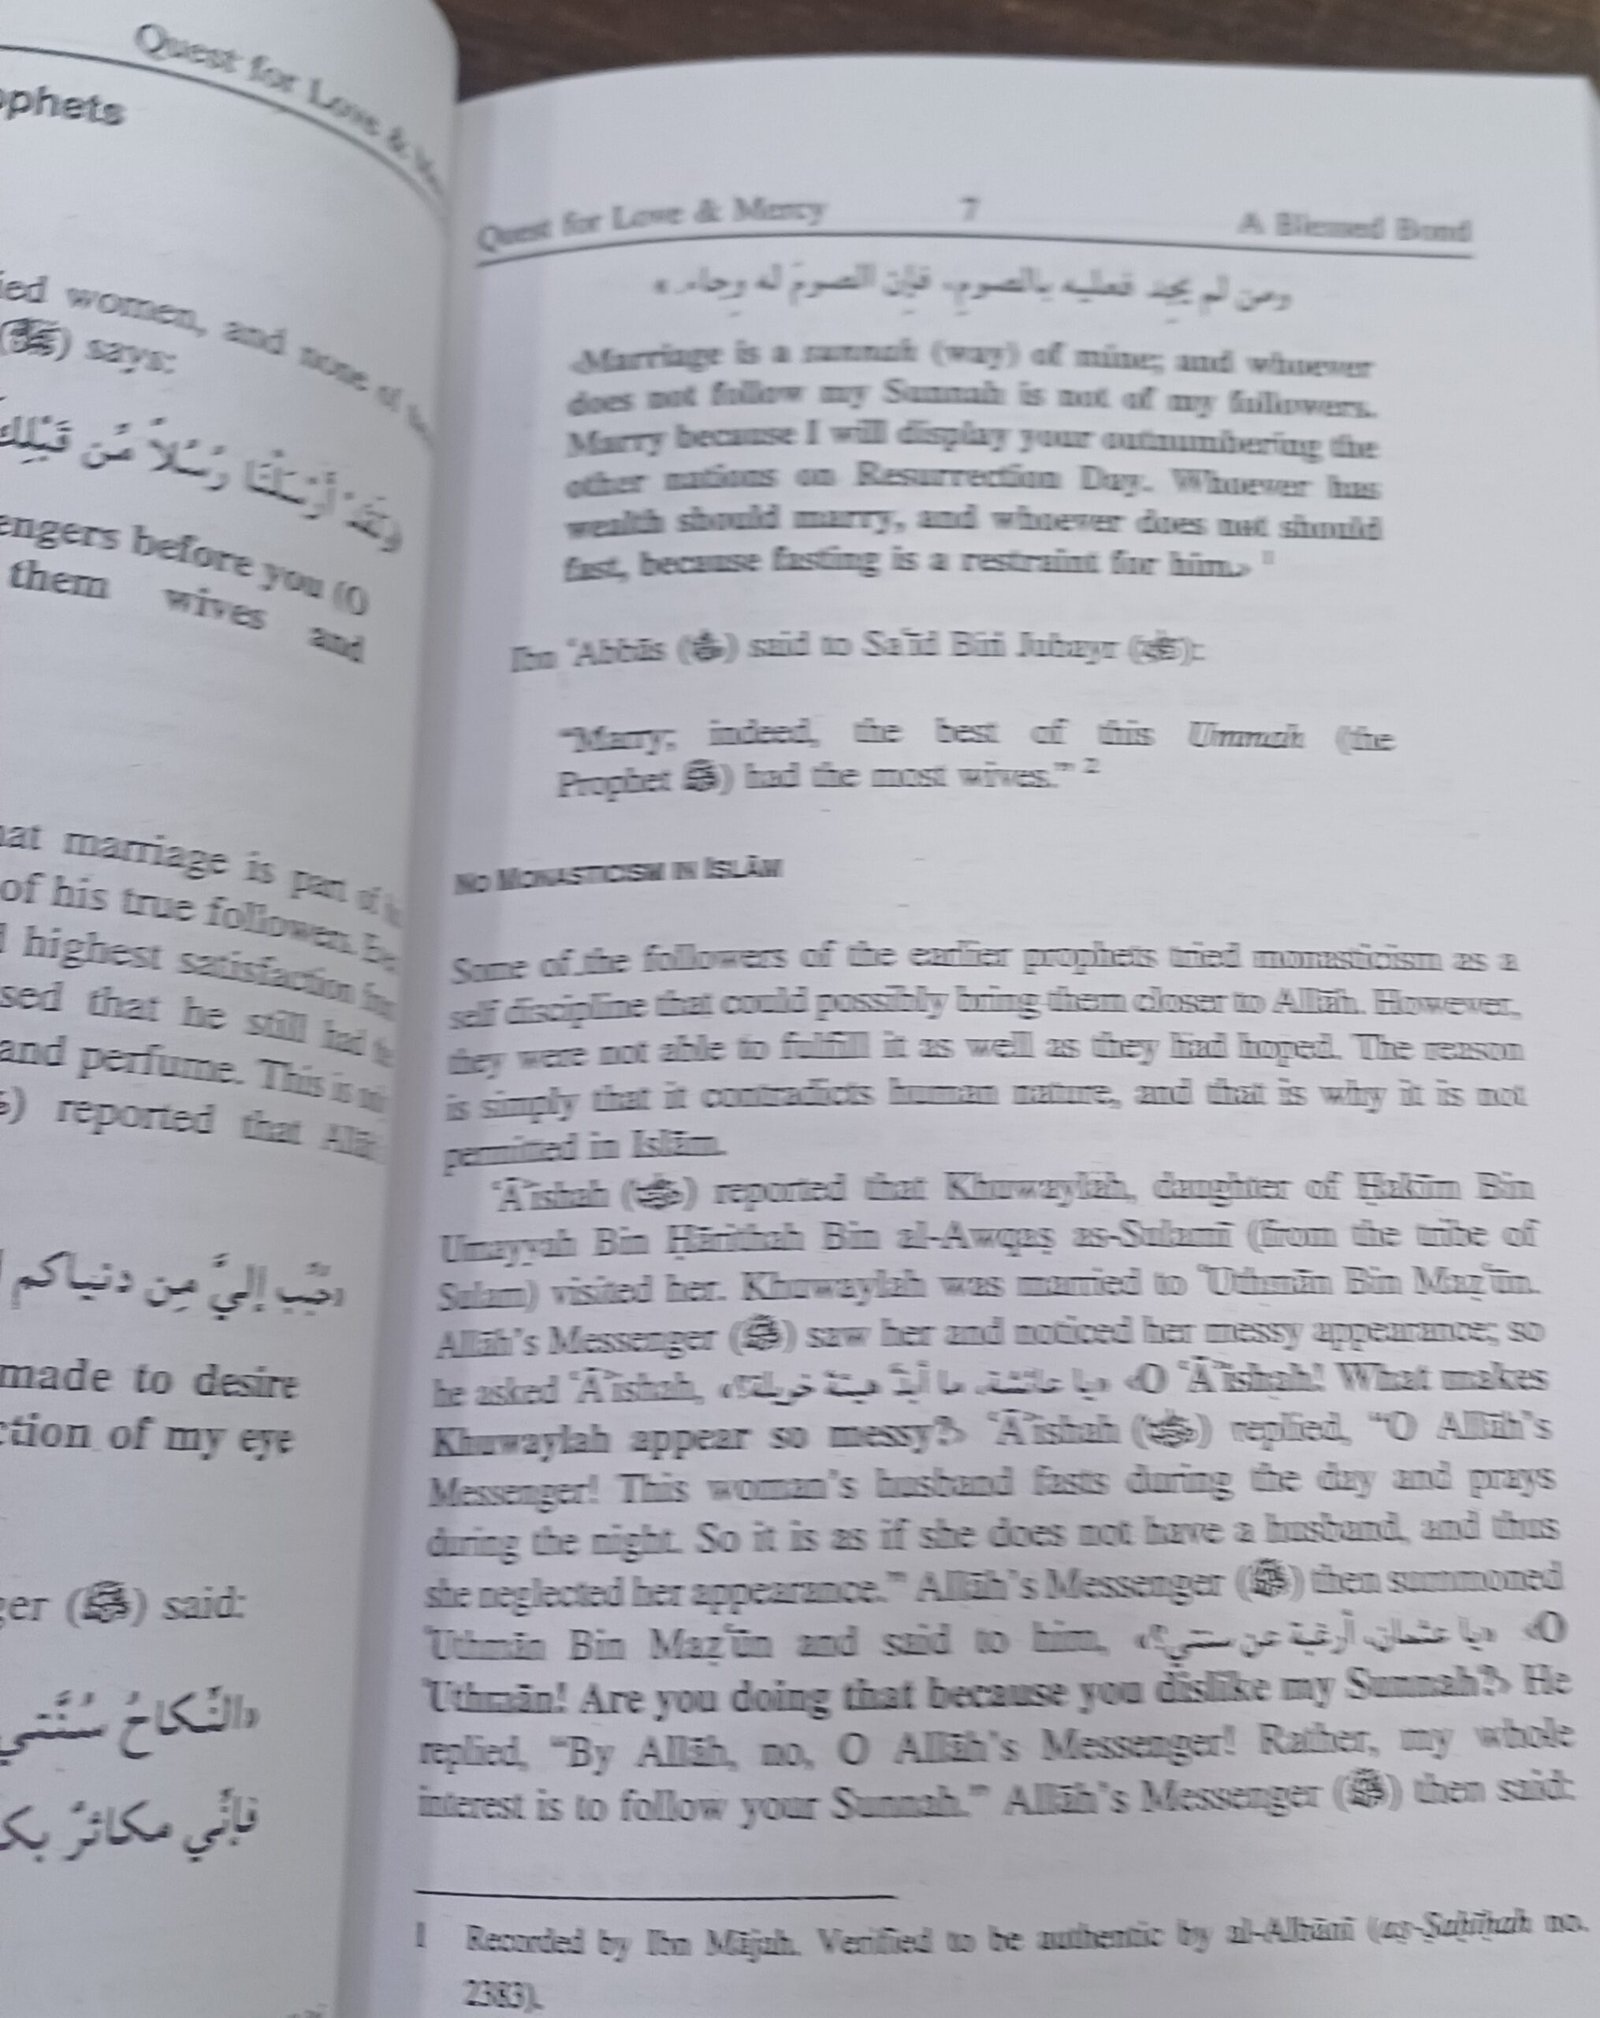 Quest for Love &
ophets
ied women, and none of
(ﷺ) says:
رُسُلاً مِّن قَبْلِكَ
engers before you (O
them wives and
hat marriage is part of
of his true followers.
highest satisfaction
sed that he still had
and perfume. This is
) reported that
حُبِّب إليَّ مِن دنياكم
made to desire
ction of my eye
ger (ﷺ) said:
«النِّكاحُ سُنَّتي
فإنِّي مكاثرٌ
Quest for Love & Mercy 7 A Blessed Bond
ومن لم يجِد فعليه بالصومِ، فإن الصومَ له وِجاء. »
‹Marriage is a sunnah (way) of mine; and whoever
does not follow my Sunnah is not of my followers.
Marry because I will display your outnumbering the
other nations on Resurrection Day. Whoever has
wealth should marry, and whoever does not should
fast, because fasting is a restraint for him.› 1
Ibn ʿAbbās () said to Saʿīd Bin Jubayr ():
“Marry; indeed, the best of this Ummah (the
Prophet ﷺ) had the most wives.” 2
NO MONASTICISM IN ISLĀM
Some of the followers of the earlier prophets tried monasticism as a
self discipline that could possibly bring them closer to Allāh. However,
they were not able to fulfill it as well as they had hoped. The reason
is simply that it contradicts human nature, and that is why it is not
permitted in Islām.
ʿĀʾishah () reported that Khuwaylah, daughter of Ḥakīm Bin
Umayyah Bin Ḥārithah Bin al-Awqaṣ as-Sulamī (from the tribe of
Sulam) visited her. Khuwaylah was married to ʿUthmān Bin Maẓʿūn.
Allāh’s Messenger (ﷺ) saw her and noticed her messy appearance; so
he asked ʿĀʾishah, «يا عائشة، ما أبذّ هيئة خويلة؟» ‹O ʿĀʾishah! What makes
Khuwaylah appear so messy?› ʿĀʾishah () replied, “O Allāh’s
Messenger! This woman’s husband fasts during the day and prays
during the night. So it is as if she does not have a husband, and thus
she neglected her appearance.” Allāh’s Messenger (ﷺ) then summoned
ʿUthmān Bin Maẓʿūn and said to him, «يا عثمان، أرغبة عن سنتي؟» ‹O
ʿUthmān! Are you doing that because you dislike my Sunnah?› He
replied, “By Allāh, no, O Allāh’s Messenger! Rather, my whole
interest is to follow your Sunnah.” Allāh’s Messenger (ﷺ) then said:
1 Recorded by Ibn Mājah. Verified to be authentic by al-Albānī (aṣ-Ṣaḥīḥah no.
2383).